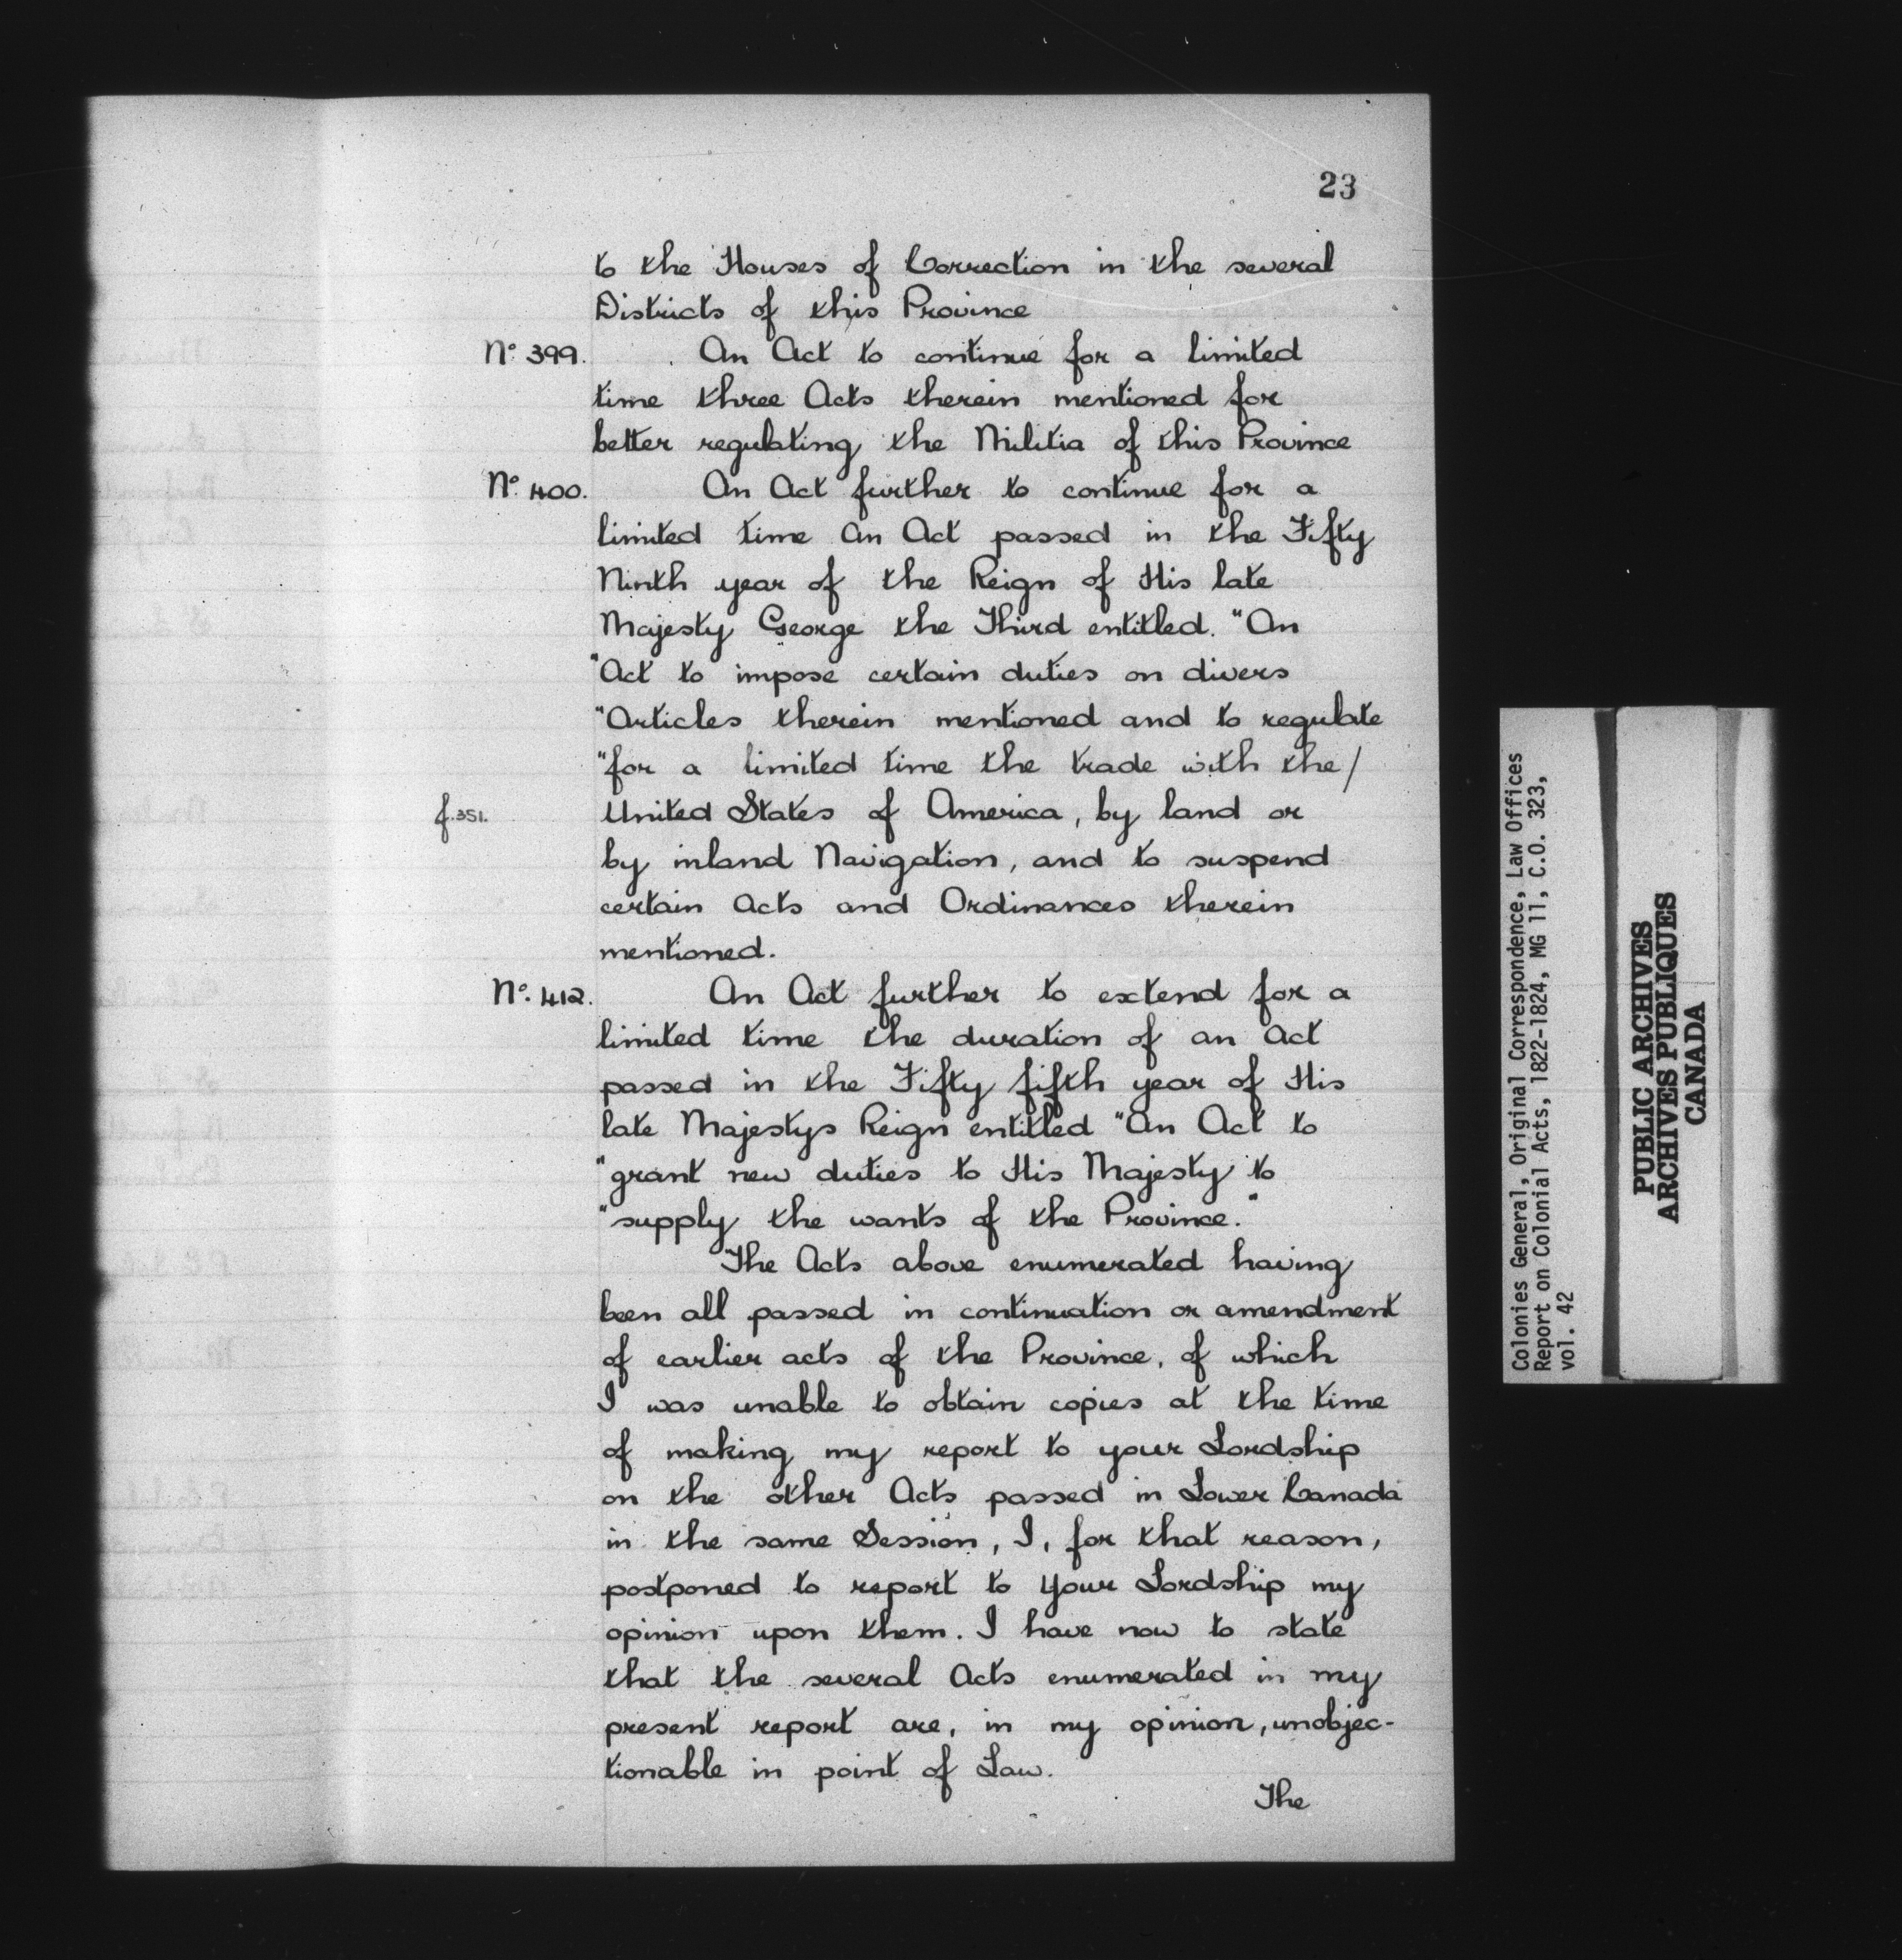 23
to the Houses of Correction in the several
Districts of this Province
No. 399. An Act to continue for a limited
time three Acts therein mentioned for
better regulating the Militia of this Province
No. 400. An Act further to continue for a
limited time an Act passed in the Fifty
Ninth year of the Reign of His late
Majesty George the Third entitled. "An
"Act to impose certain duties on divers
"Articles therein mentioned and to regulate
"for a limited time the trade with the/
f.351. United States of America, by land or
by inland Navigation, and to suspend
certain Acts and Ordinances therein
mentioned.
No. 412. An Act further to extend for a
limited time the duration of an Act
passed in the Fifty fifth year of His
late Majestys Reign entitled "An Act to
"grant new duties to His Majesty to
"supply the wants of the Province."
The Acts above enumerated having
been all passed in continuation or amendment
of earlier acts of the Province, of which
I was unable to obtain copies at the time
of making my report to your Lordship
on the other Acts passed in Lower Canada
in the same Session, I, for that reason,
postponed to report to Your Lordship my
opinion upon them. I have now to state
that the several Acts enumerated in my
present report are, in my opinion, unobjec-
tionable in point of Law.
The
Colonies General, Original Correspondence, Law Offices
Report on Colonial Acts, 1822-1824, MG 11, C.O. 323,
vol. 42
PUBLIC ARCHIVES
ARCHIVES PUBLIQUES
CANADA